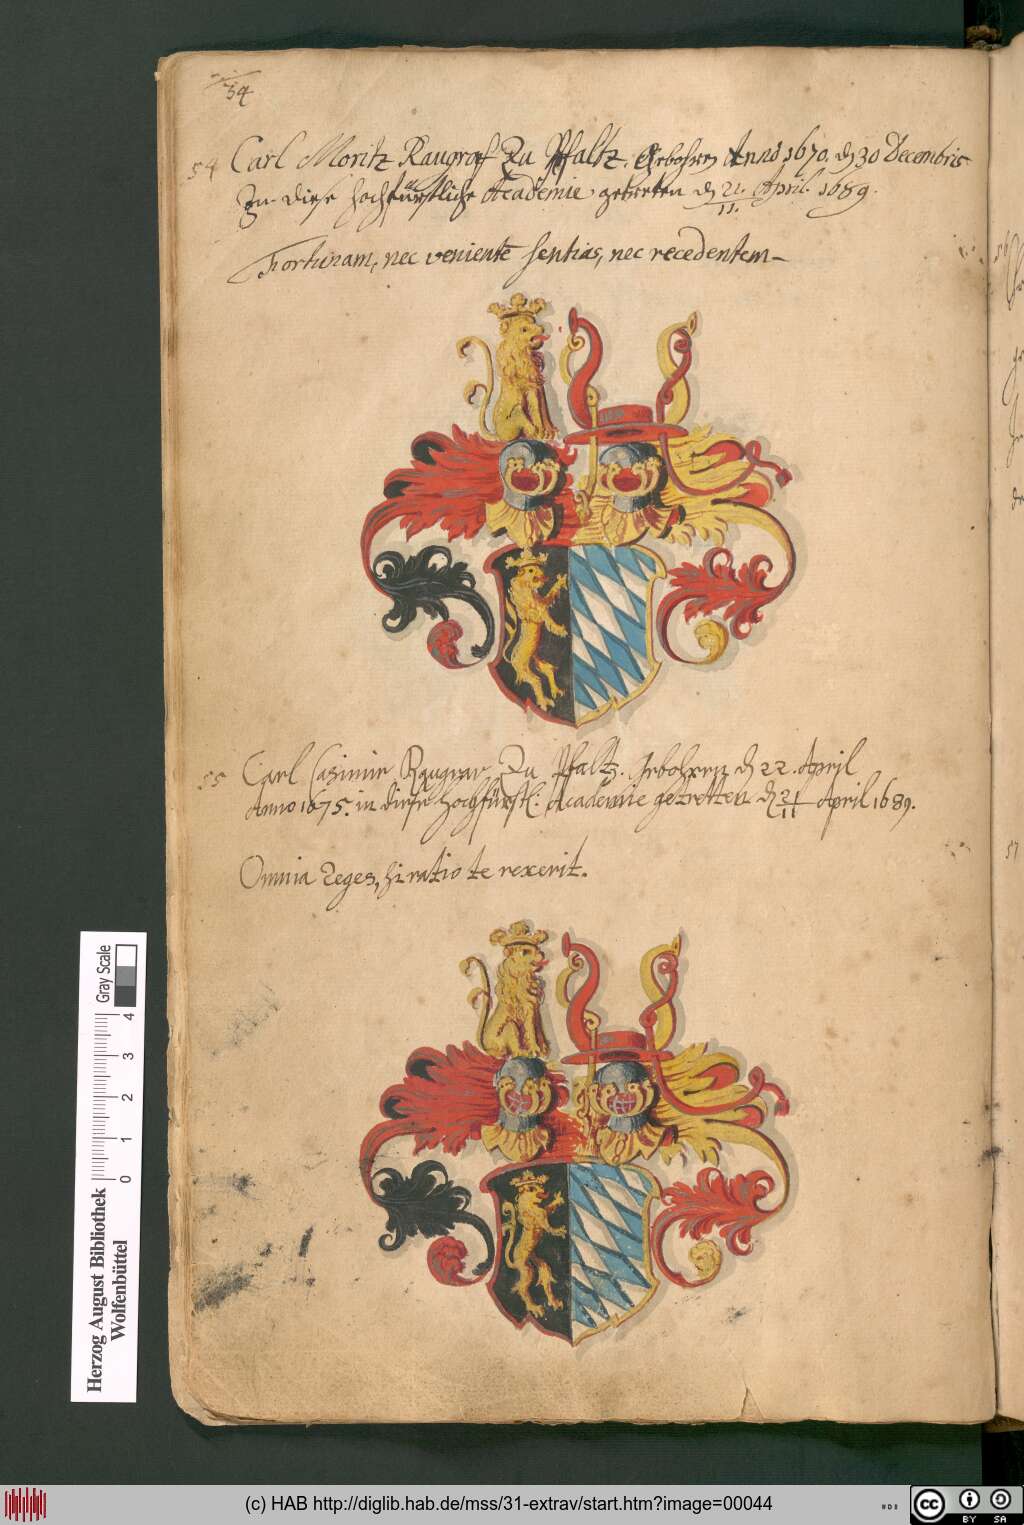 34
54 Carl Moritz Raugraf Zu Pfaltz. Gebohren Anno 1670. dẽ 30 Decembris
In diese hochfürstliche Academie getretten dẽ 21./11. April. 1689.
Fortunam, nec venientẽ sentias, nec recedentem
55 Carl Casimir Raugrav Zu Pfaltz. Gebohren dẽ 22. April
Anno 1675. in diese hochfürstl: Academie getretten dẽ 21/11 April 1689.
Omnia reges, si ratio te rexerit.
57
Gray Scale
0 1 2 3 4
Herzog August Bibliothek
Wolfenbüttel
(c) HAB http://diglib.hab.de/mss/31-extrav/start.htm?image=00044
cc BY SA